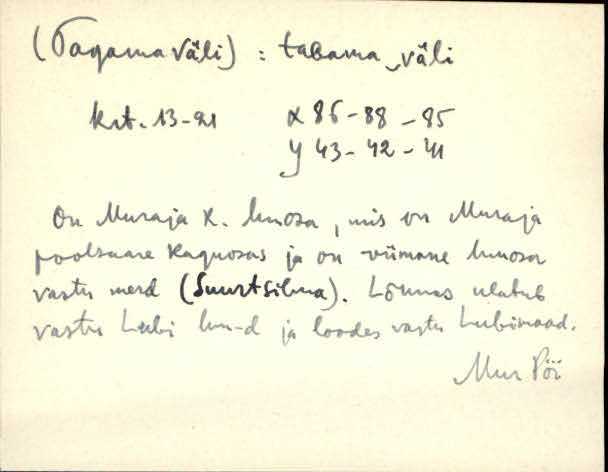 (Tagamaväli) : tagama_väli
krt. 13-21 x 86-88-85
y 43-42-41
On Muraja k. luuosa, mis on Muraja
poolsaare kaguosas ja on viimane luuosa
vastu merd (Suurtsilma). Lõunas ulatub
vastu Lubi luu-d ja loodes vastu Lubimaad.
Mur Pöi